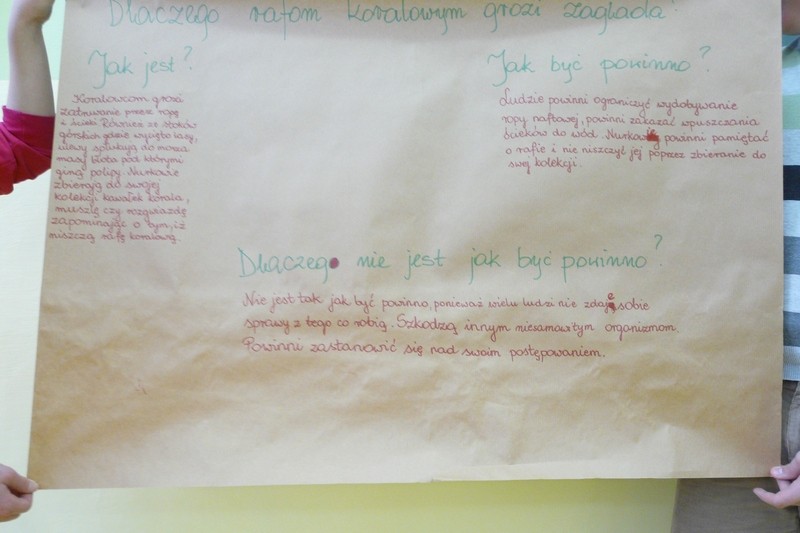 Dlaczego rafom koralowym grozi zagłada?
Jak jest?
Koralowcom grozi
zatruwanie przez ropę
i ścieki. Również ze stoków
górskich gdzie wycięto lasy,
ulewy spłukują do morza
masy błota pod którymi
giną polipy. Nurkowie
zbierają do swojej
kolekcji kawałek korala,
muszlę czy rozgwiazdę
zapominając o tym, iż
niszczą rafę koralową.
Jak być powinno?
Ludzie powinni ograniczyć wydobywanie
ropy naftowej, powinni zakazać wpuszczania
ścieków do wód. Nurkowie powinni pamiętać
o rafie i nie niszczyć jej poprzez zbieranie do
swej kolekcji.
Dlaczego nie jest jak być powinno?
Nie jest tak jak być powinno, ponieważ wielu ludzi nie zdaje sobie
sprawy z tego co robią. Szkodzą innym niesamowitym organizmom.
Powinni zastanowić się nad swoim postępowaniem.